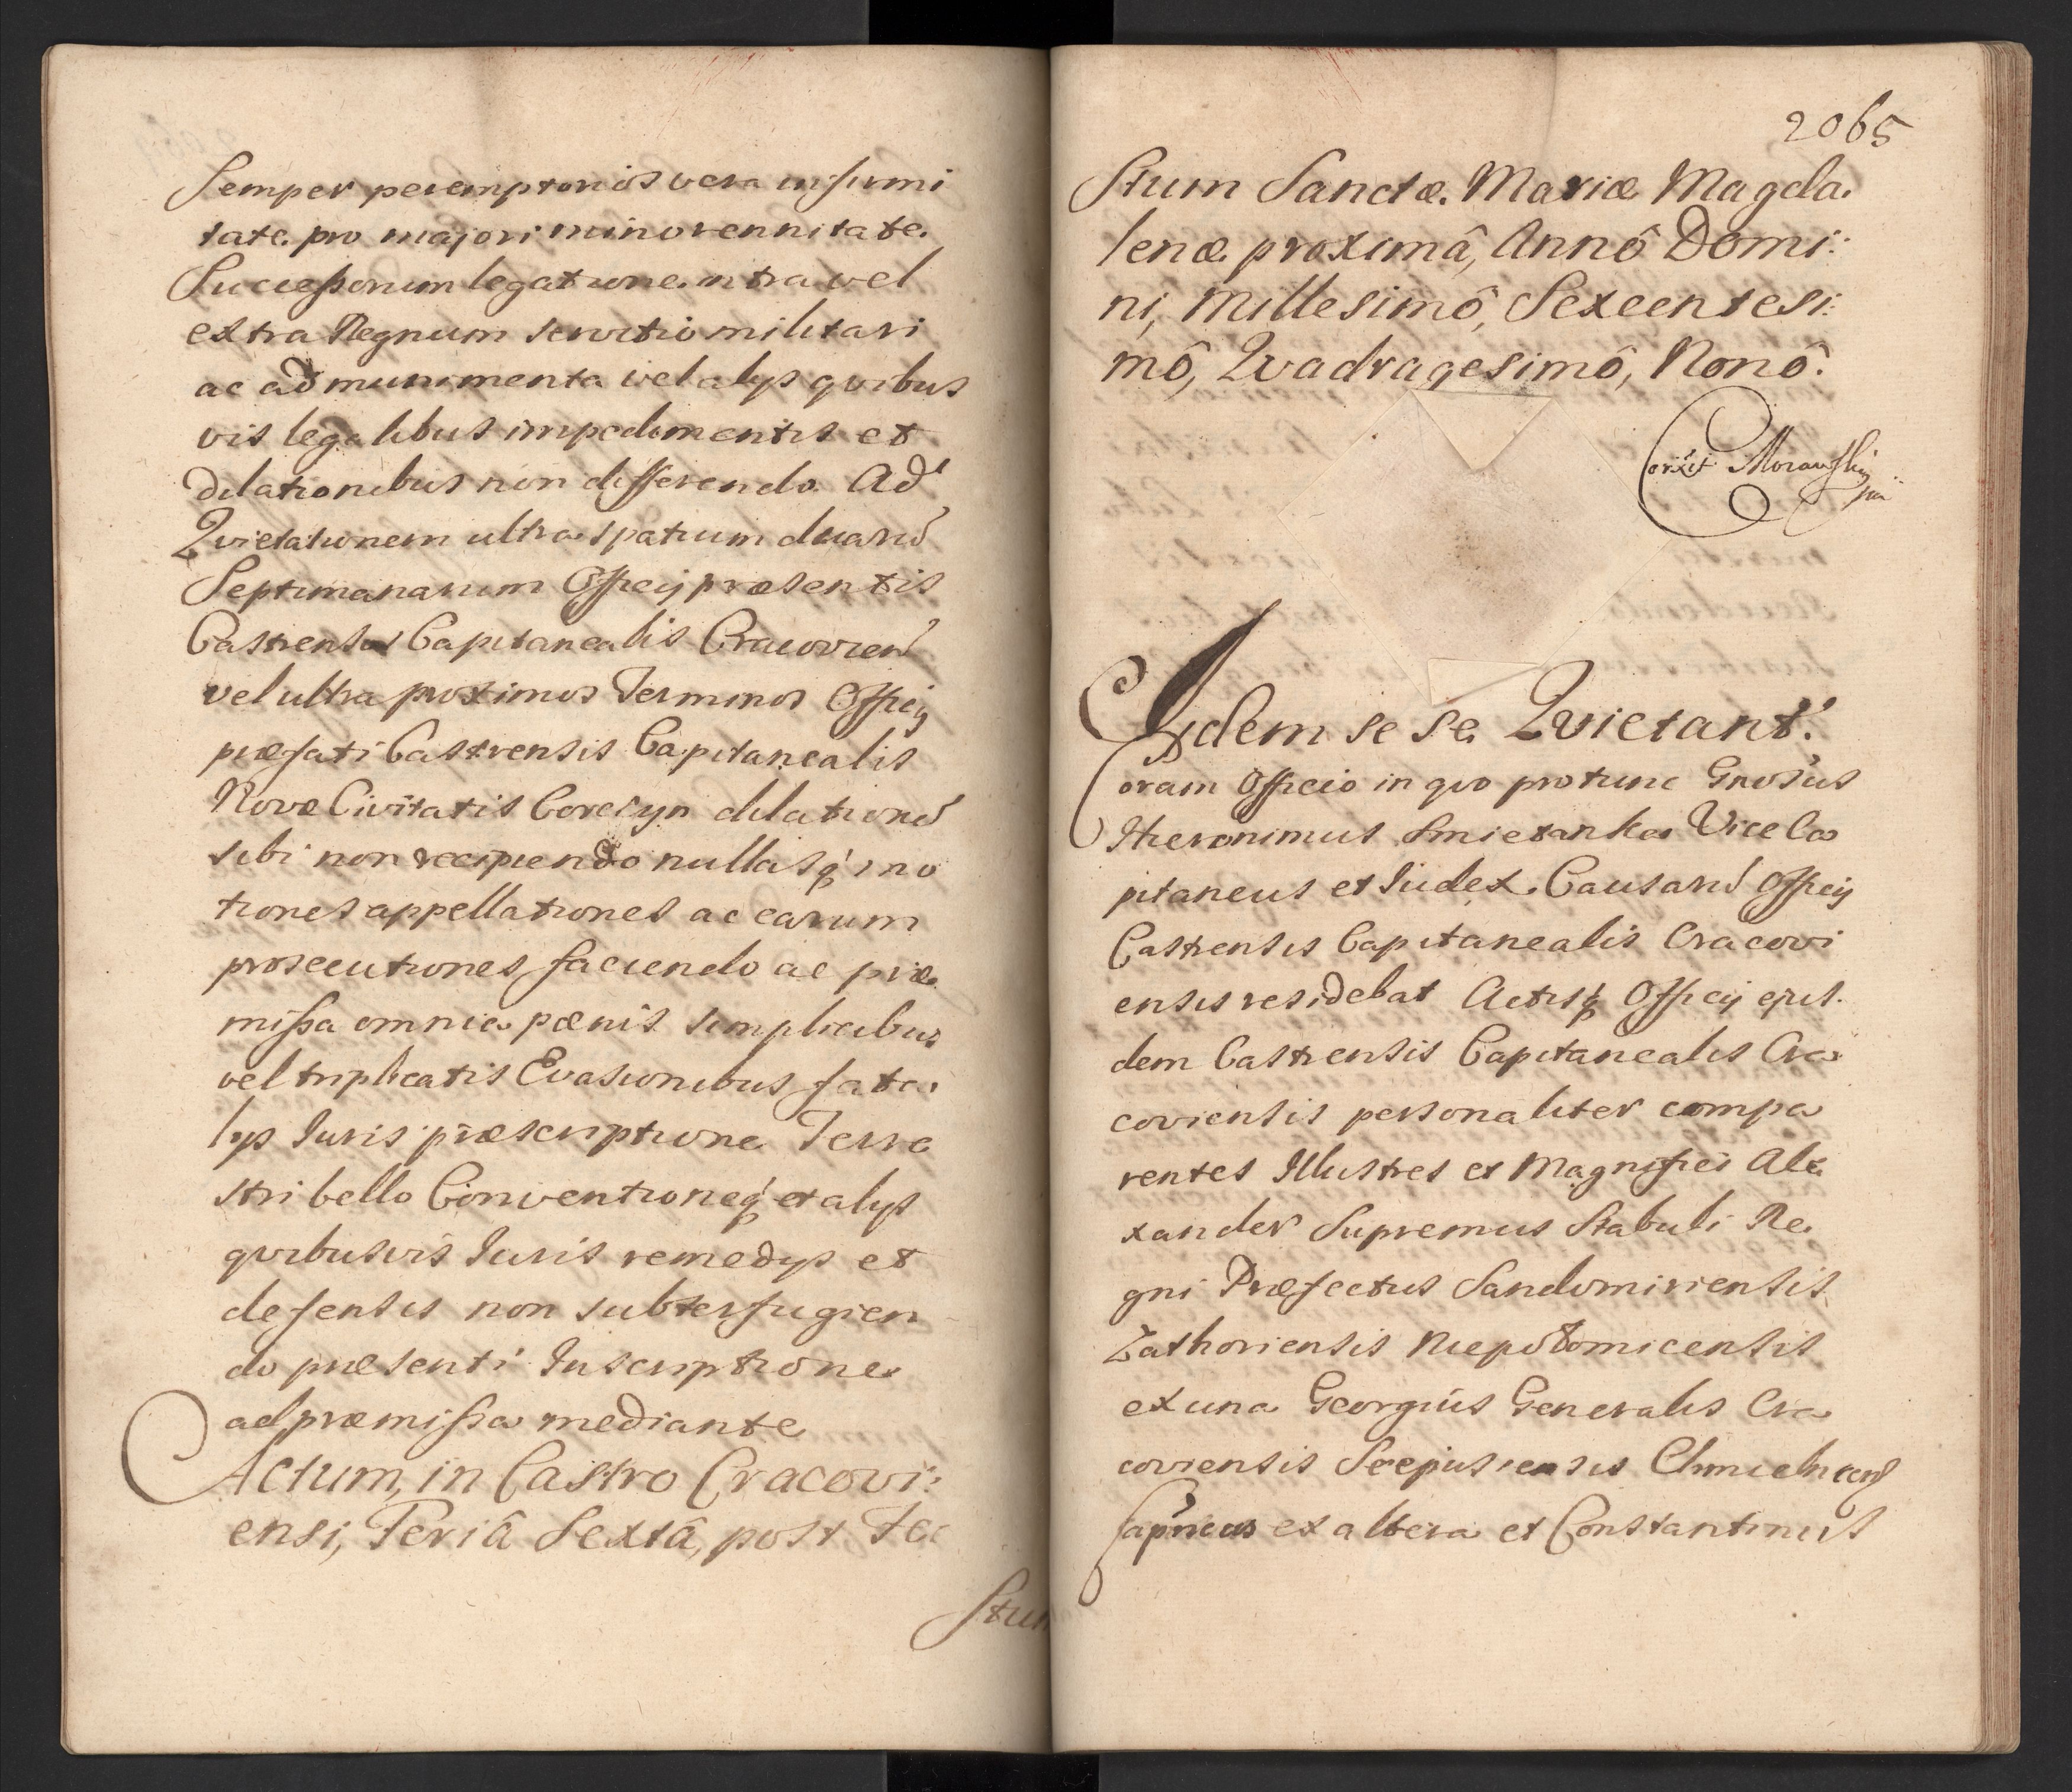 Semper peremptoriis vera infirmi
tate pro majori minorennitate
Successorum legatione intra vel
extra Regnum servitio militari
ac ad munimenta vel alys qvibus
vis legalibus impedimentis et
dilationibus non differendo Ad
Qvietationem ultra spatium duarū
Septimanarum Officij præsentis
Castrensis Capitanealis Cracovien
vel ultra proximos Terminos Officij
præfati Castrensis Capitanealis
Novæ Civitatis Corcżyn dilationē
sibi non recipiendo nullasq̨ mo
tiones appellationes ac earum
prosecutiones faciendo ac præ
missa omnia pænis simplicibus
vel triplicatis Evasionibus fata
lys Iuris præscriptione Terre
stri bello Conventioneq̨ et alys
qvibusvis Iuris remedys et
defensis non subterfugien
do præsenti Inscriptione
ad præmissa mediante
Actum, in Castro Cracovi:
ensi, Feriâ Sextâ, post Fe
Stum
2065
Stum Sanctæ Mariæ Magda
lenæ proximâ, Annô Domi:
ni, Millesimô, Sexcentesi:
mô, Qvadragesimô, Nonô.
Corexit Morawski
Iidem se se Qvietant.
Coram Officio in qvo protunc Gnosus
Hieronimus Smietanka Vice Ca
pitaneus et Iudex Causarū Officij
Castrensis Capitanealis Cracovi
ensis residebat Actisq̨ Officij ejus
dem Castrensis Capitanealis Cra
coviensis personaliter compa
rentes Illustres et Magnifici Ale
xander Supremus Stabuli Re
gni Præfectus Sandomiriensis
Zathoriensis Niepołomicensis
ex una Georgius Generalis Cra
coviensis Scepusiensis Chmielnicens
Capneus ex altera et Constantinus